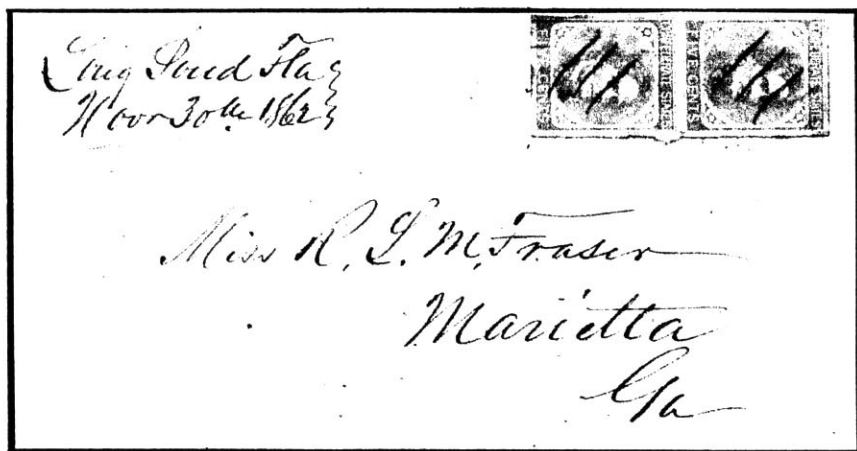 Long Pond Fla
Nov 30th 1862
FIVE CENTS
Miss R. L. M. Fraser
Marietta
Ga